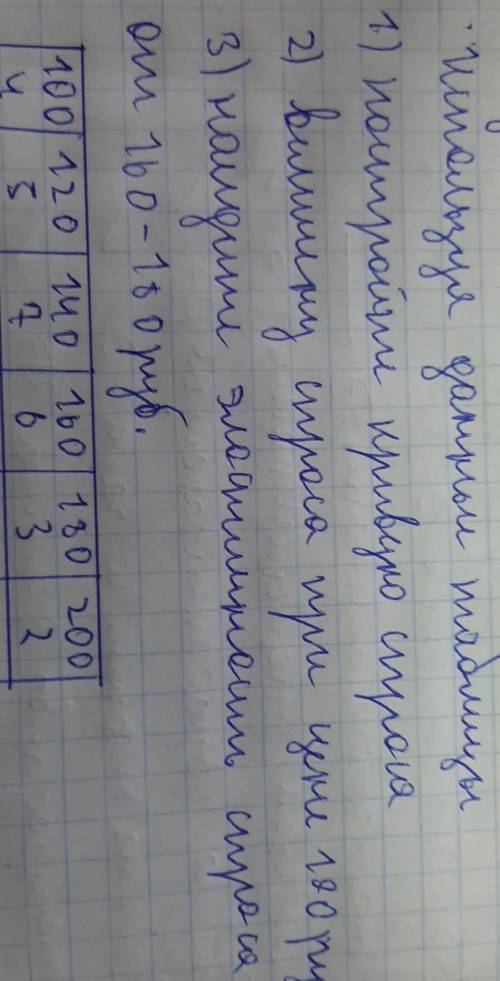 Используя данным таблицы
1) постройте кривую спроса
2) величину спроса при цене 180 ру
3) найдите эластичность спроса
от 160-180 руб.
100 120 140 160 180 200
4 5 7 6 3 2